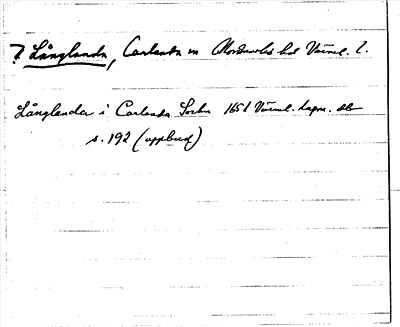 ? Långlanda, Carlanda sn Nordmarks hd Värml. l.
Långlanda i Carlanda Sochn 1651 Värml. lagm. db
s. 192 (uppbud)